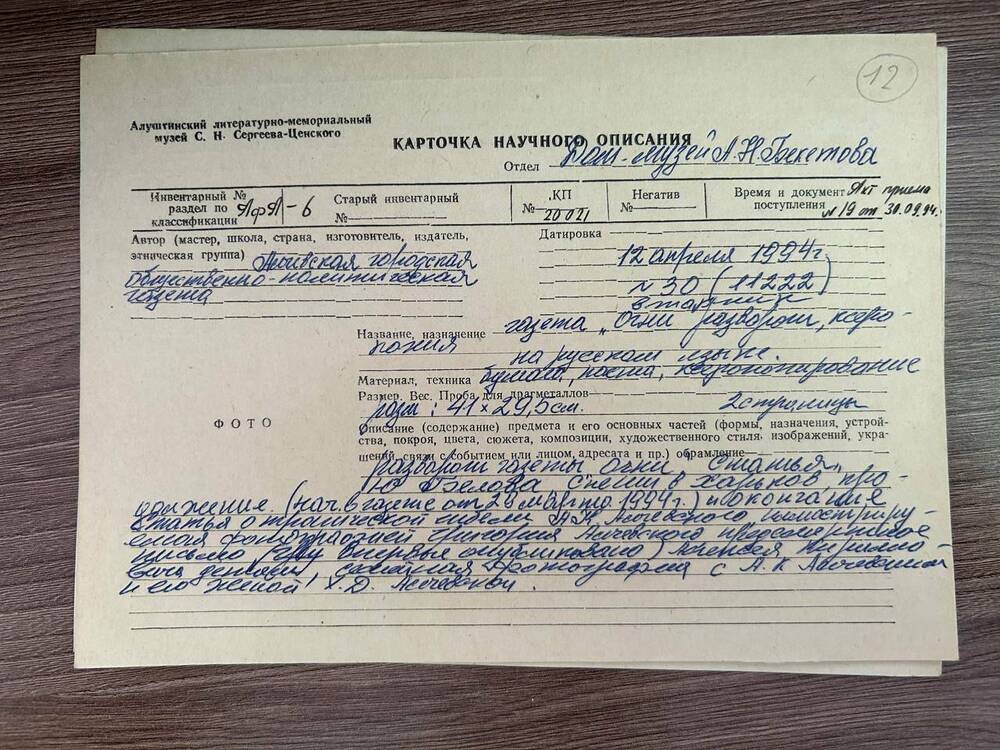 12
Алуштинский литературно-мемориальный
музей С. Н. Сергеева-Ценского
КАРТОЧКА НАУЧНОГО ОПИСАНИЯ
Отдел Дом-музей А.Н. Бекетова
Инвентарный №
раздел по
классификации АфА-6
Старый инвентарный
№
КП
№ 20021
Негатив
№
Время и документ Акт приема
поступления №19 от 30.09.94г.
Автор (мастер, школа, страна, изготовитель, издатель,
этническая группа) городская
общественно-политическая
газета
Датировка
12 апреля 1994г.
№ 30 (11222)
вторник
Название, назначение газета „Огни разворот, ксеро-
копия на русском языке.
Материал, техника бумага, паста, ксерокопирование
Размер. Вес. Проба для драгметаллов
разм: 41×29,5см. 2 страницы
ФОТО
Описание (содержание) предмета и его основных частей (формы, назначения, устрой-
ства, покроя, цвета, сюжета, композиции, художественного стиля изображений, укра-
шений, связи с событием или лицом, адресата и пр.) обрамление
разворот газеты Огни статья
Ю Белова Спеши в Харьков, про-
должение. (нач. в газете от 29 марта 1994г.) и окончание
статья о трагической гибели А.К Алчевского иллюстриру-
емая фотографией Григория Алчевского предсмертное
письмо впервые опубликовано) Алексея Кирилло-
вича семейная фотография с А.К Алчевским
и его женой Х.Д. Алчевской.